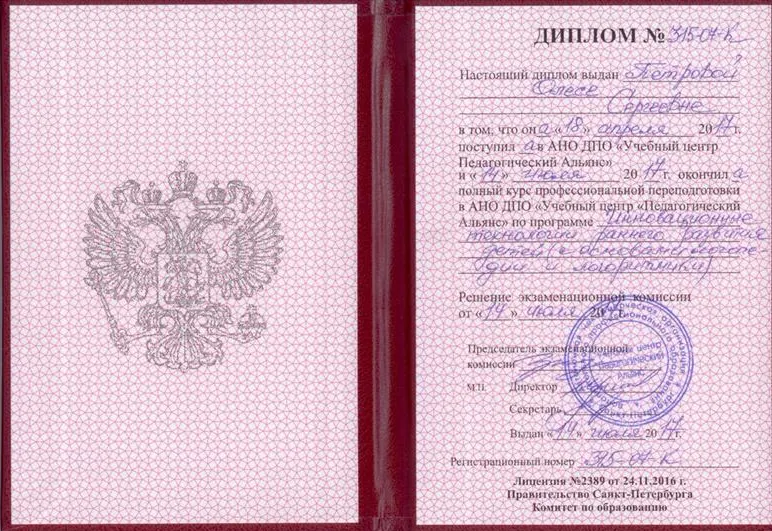 ДИПЛОМ № 315-07-К
Настоящий диплом выдан Петровой
Олесе
Сергеевне
в том, что он а «18» апреля 2017 г.
поступил а в АНО ДПО «Учебный центр
Педагогический Альянс»
и «14» июля 2017 г. окончил а
полный курс профессиональной переподготовки
в АНО ДПО «Учебный центр «Педагогический
Альянс» по программе Инновационные
технологии раннего развития
детей (с основами логопе-
дии и логоритмики)
Решение экзаменационной комиссии
от «14» июля 2017 г.
Председатель экзаменационной
комиссии
М.П. Директор
Секретарь
Выдан «14» июля 2017 г.
Регистрационный номер 315-07-К
Лицензия №2389 от 24.11.2016 г.
Правительство Санкт-Петербурга
Комитет по образованию